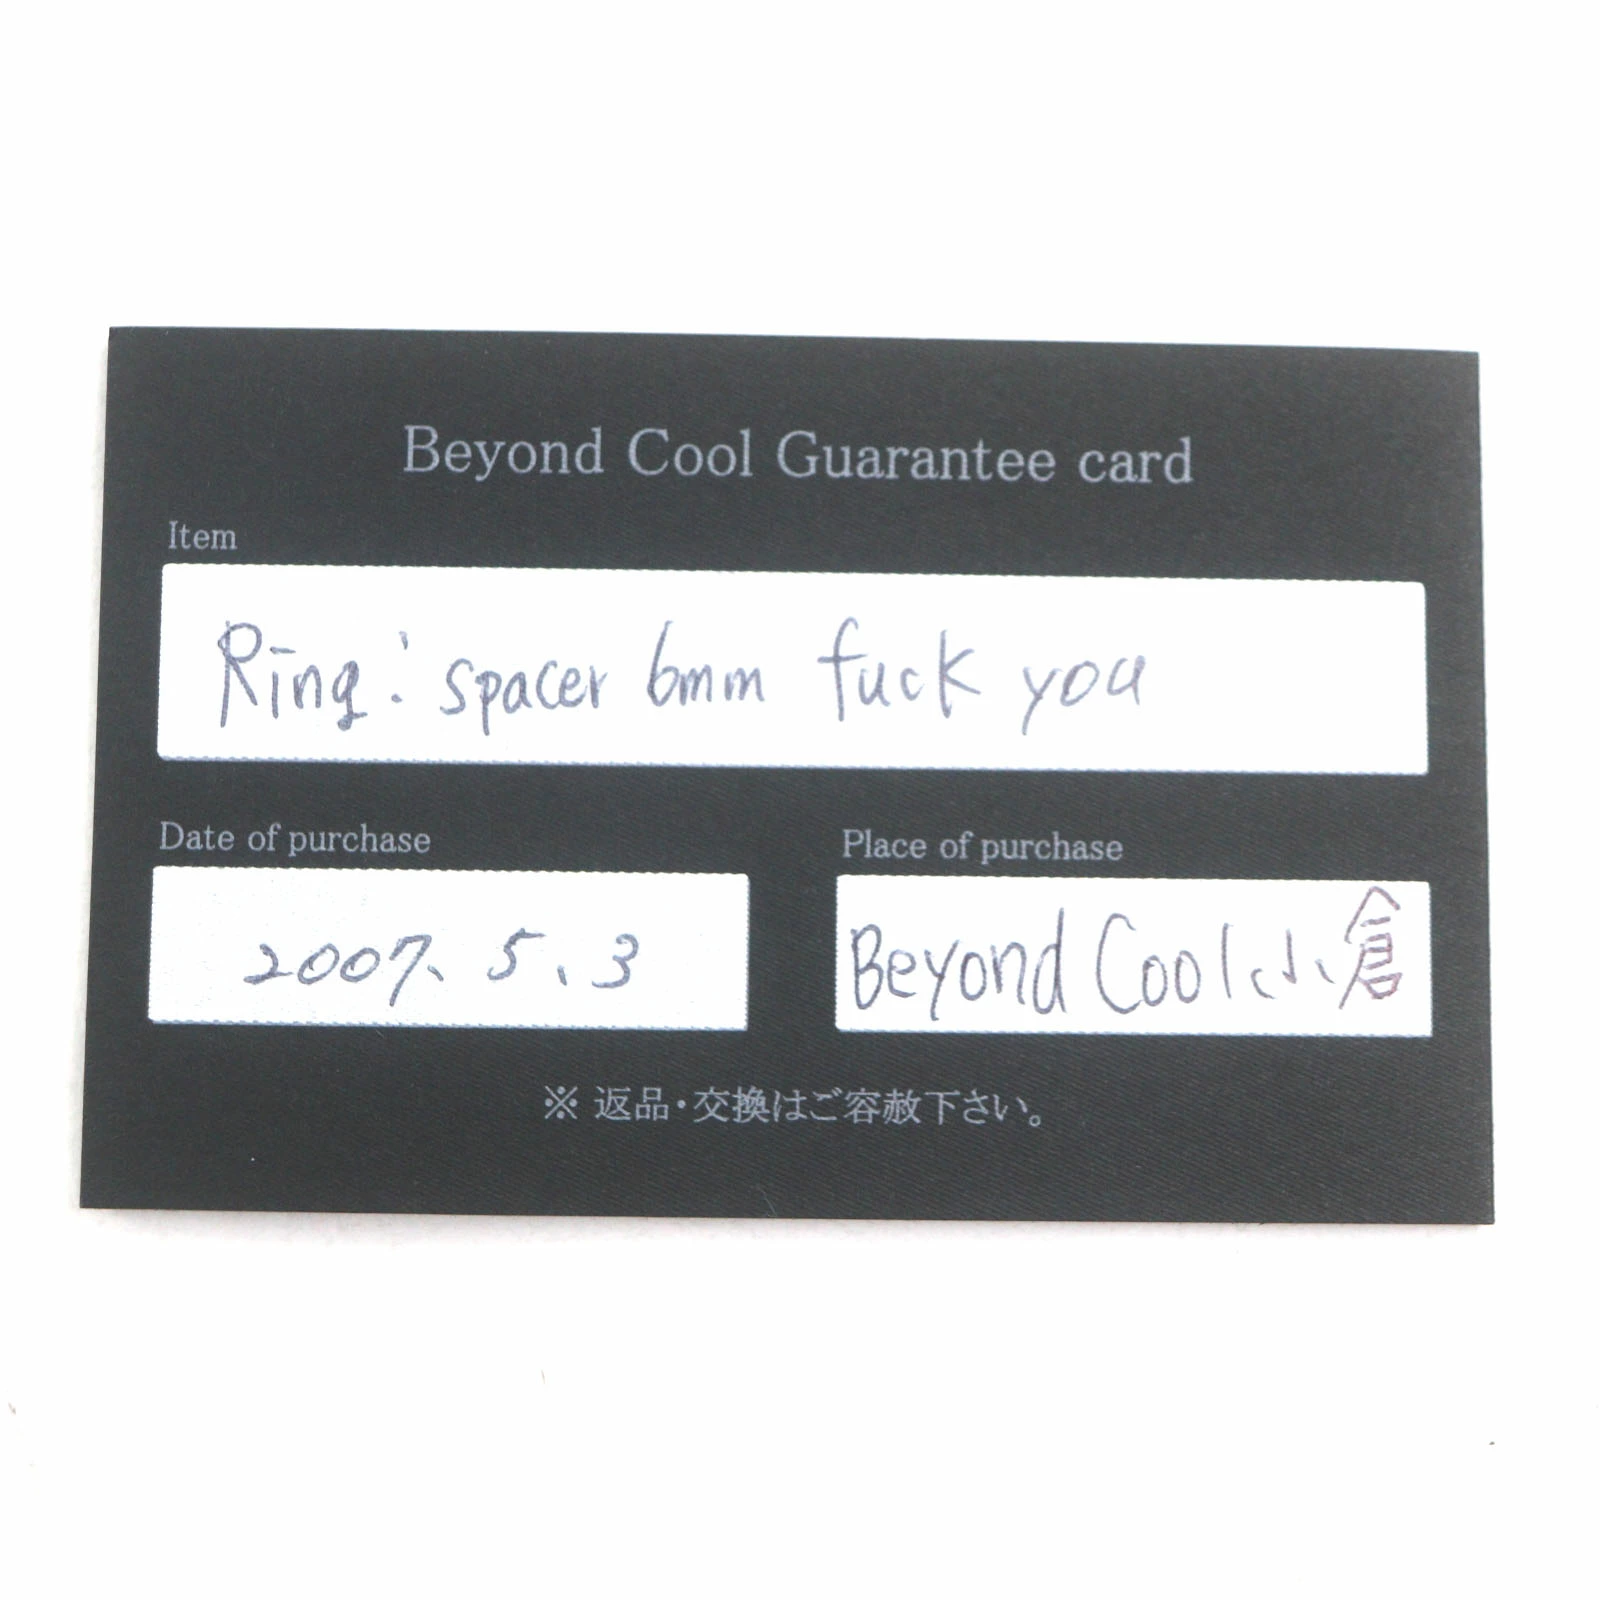 Beyond Cool Guarantee card
Item
Ring: spacer 6mm fuck you
Date of purchase
2007. 5. 3
Place of purchase
Beyond Cool 小倉
※ 返品・交換はご容赦下さい。